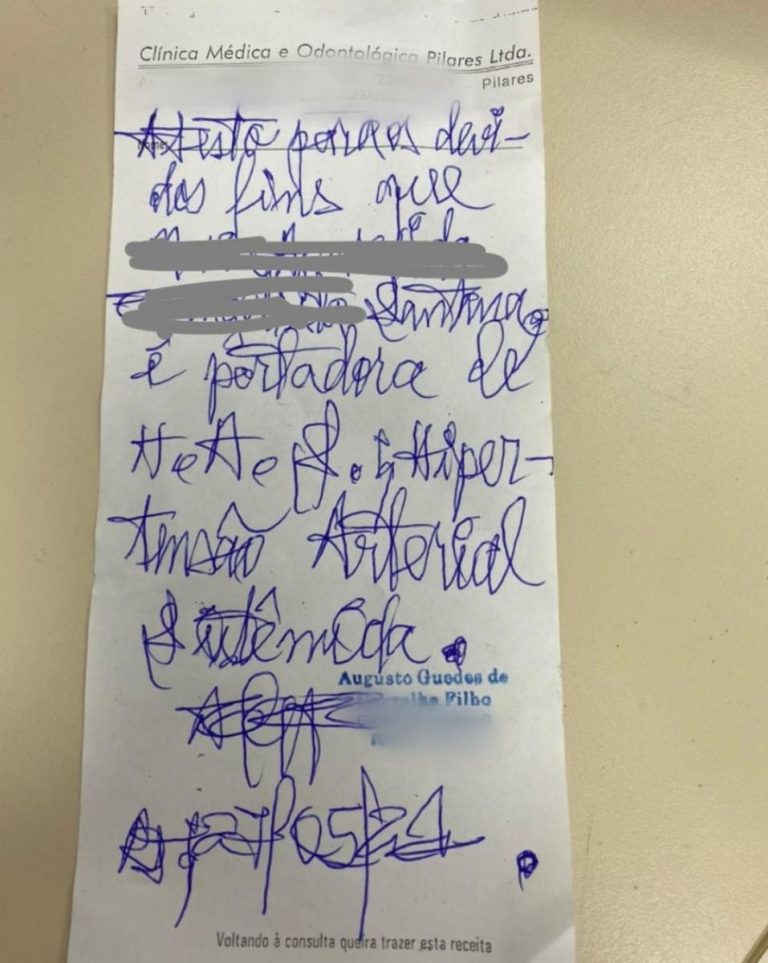 Clínica Médica e Odontológica Pilares Ltda.
Pilares
Nome:
Atesto para os devi-
dos fins que
Santana,
é portadora de
H. A. S. Hiper-
tensão Arterial
Sistêmica.
Augusto Guedes de
Carvalho Filho
27/05/21
Voltando à consulta queira trazer esta receita